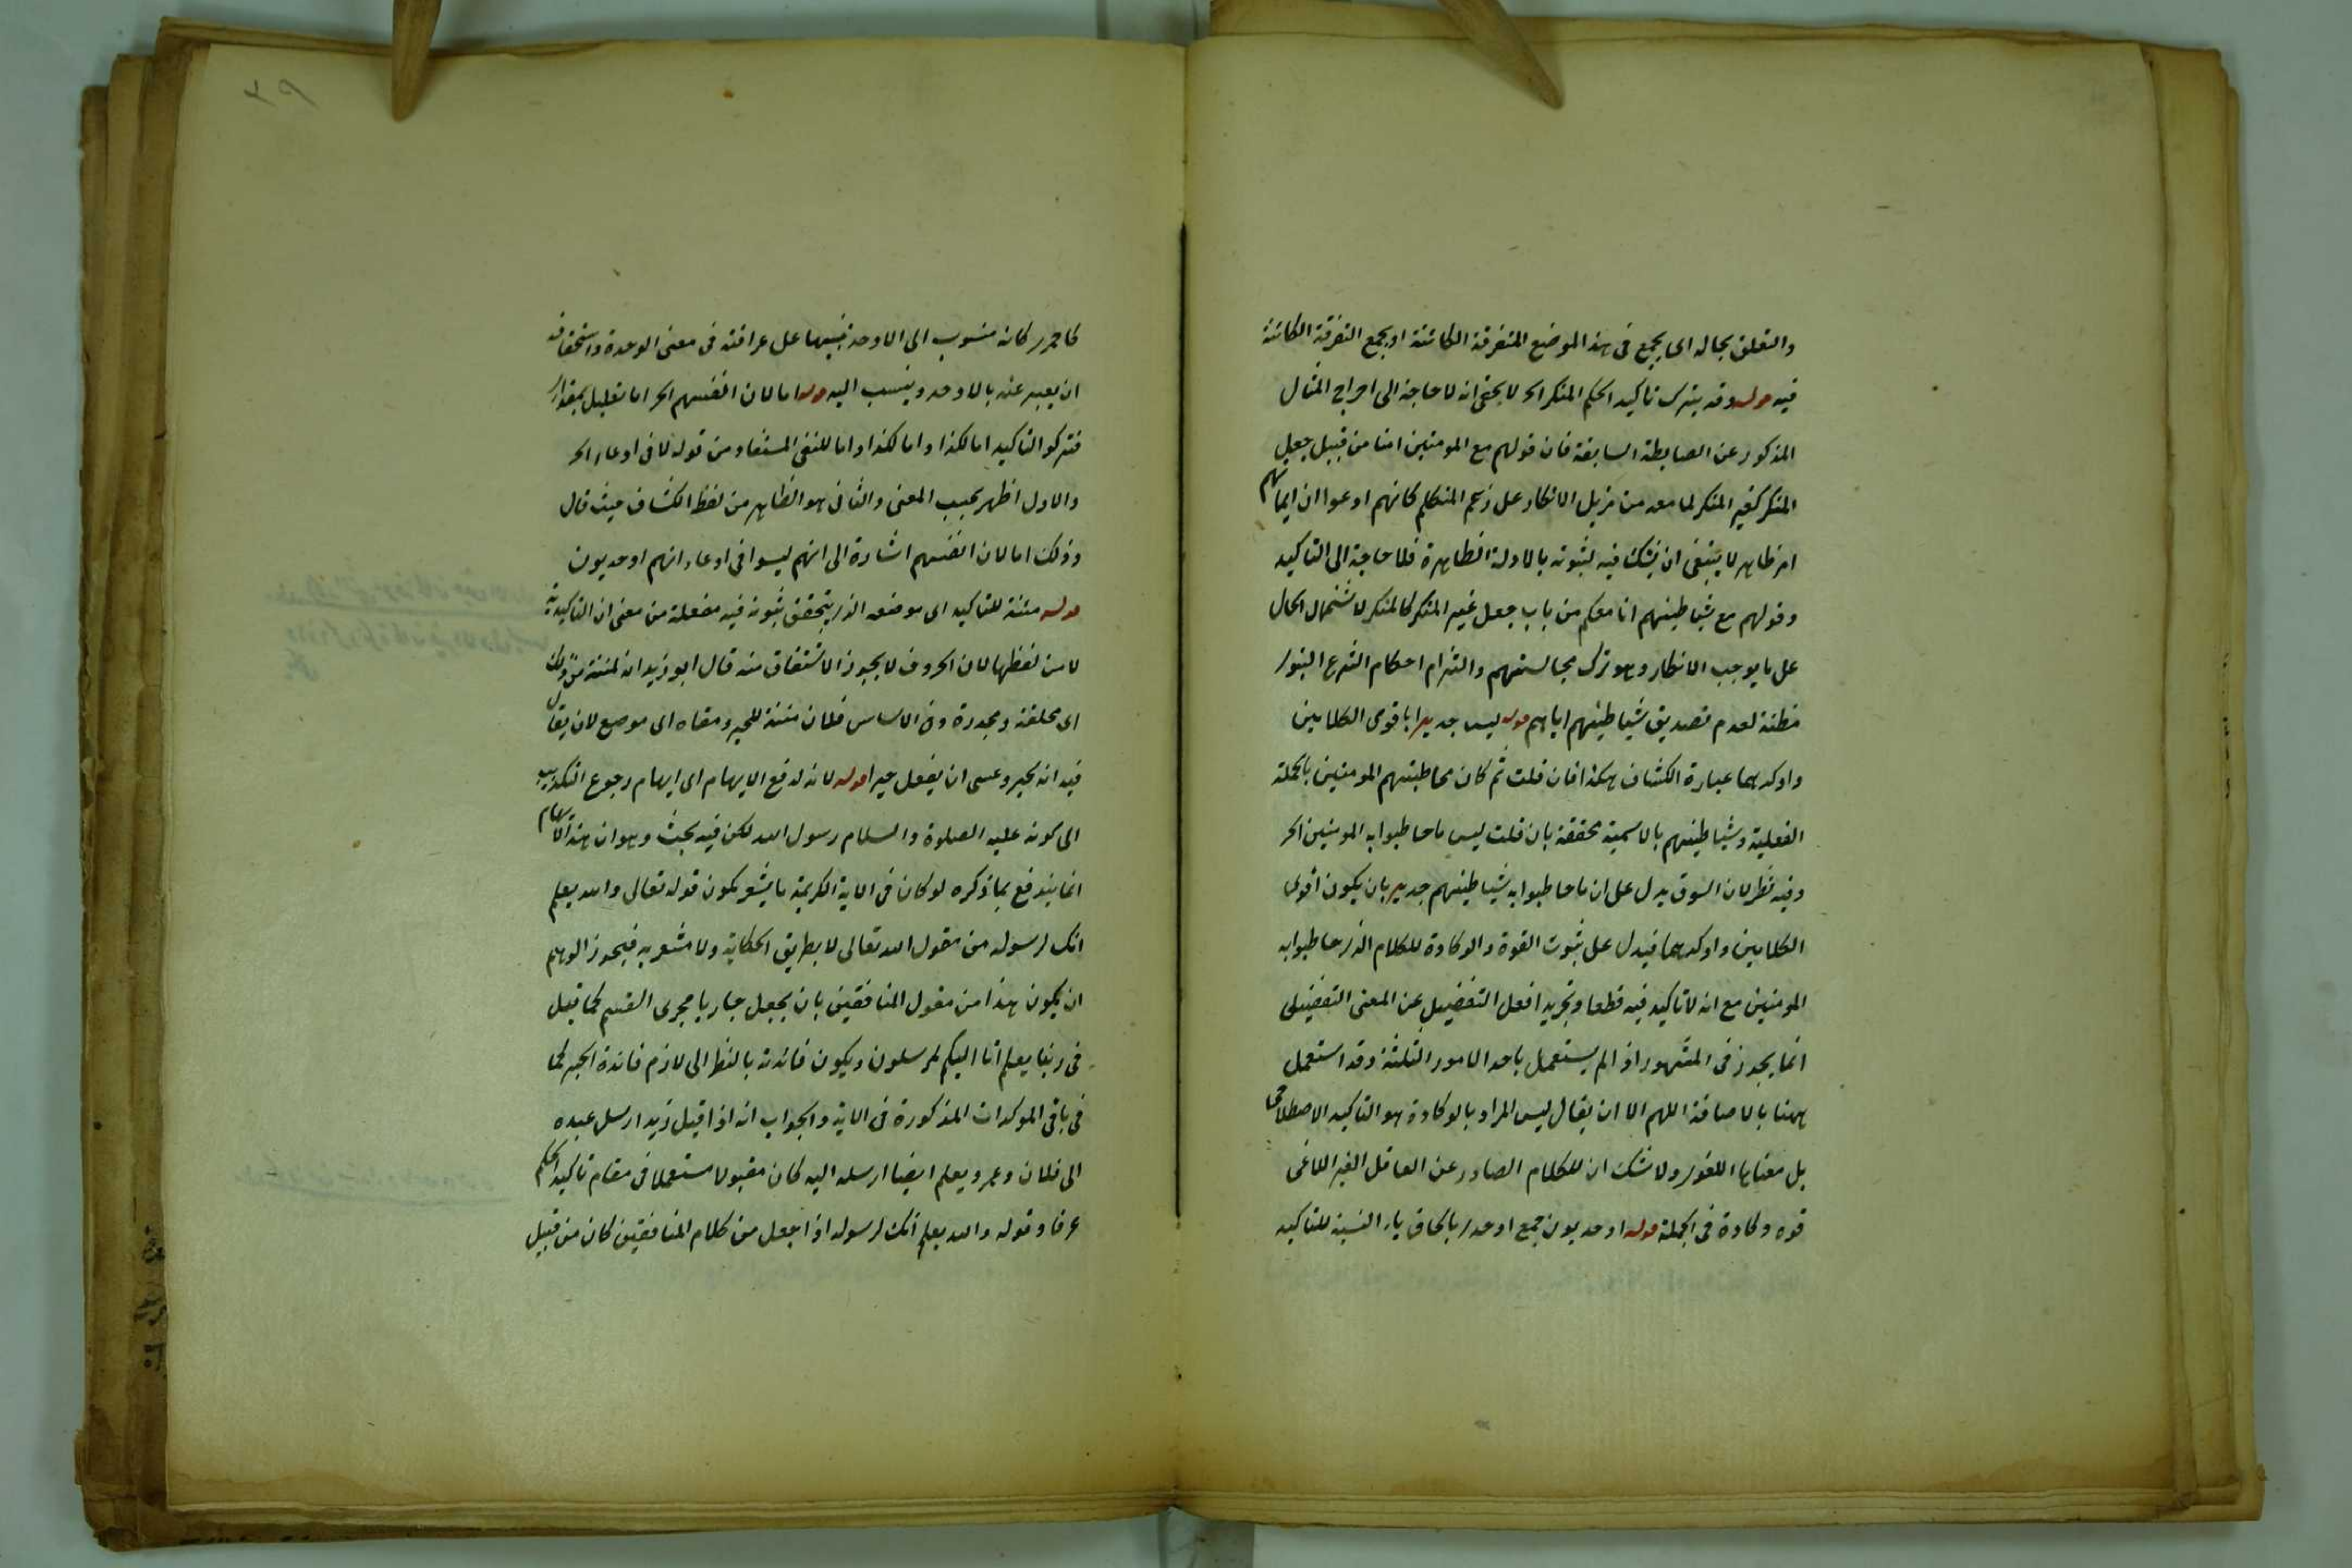 والتعلق بحاله اى يجمع فى هذا الموضع المتفرقة الكائنة او يجمع التفرقة الكائنة
فيه قوله وقد يترك تاكيد الحكم المنكر الخ لا يخفى انه لا حاجة الى اخراج المثال
المذكور عن الضابطة السابقة فان قولهم مع المومنين امنا من قبيل جعل
المنكر كغير المنكر لما معه من مزيل الانكار على زعم المتكلم كانهم ادعوا ان ايمانهم
امر ظاهر لا ينبغى ان يشك فيه لثبوته بالادلة الظاهرة فلا حاجة الى التاكيد
وقولهم مع شياطينهم انا معكم من باب جعل غير المنكر كالمنكر لاشتمال الحال
على ما يوجب الانكار وهو ترك مجالستهم والتزام احكام الشرع النبوى
مظنة لعدم تصديق شياطينهم اياهم قوله ليس جديرا باقوى الكلامين
واوكدهما عبارة الكشاف هكذا فان قلت ثم كان مخاطبتهم المومنين بالجملة
الفعلية وشياطينهم بالاسمية محققة بان قلت ليس ما خاطبوا به المومنين الخ
وفيه نظر لان السوق يدل على ان ما خاطبوا به شياطينهم جدير بان يكون اقوى
الكلامين واوكدهما فيدل على ثبوت القوة والوكادة للكلام الذى خاطبوا به
المومنين مع انه لا تاكيد فيه قطعا وتجريد افعل التفضيل عن المعنى التفضيلى
انما يجوز فى المشهور اذا لم يستعمل باحد الامور الثلثة وقد استعمل
ههنا بالاضافة اللهم الا ان يقال ليس المراد بالوكادة هو التاكيد الاصطلاحى
بل معناها اللغوى ولا شك ان للكلام الصادر عن العاقل الغير اللاغى
قوه وكادة فى الجملة قوله اوحديون جمع اوحدى بالحاق ياء النسبة للتاكيد
كاحمرى كانه منسوب الى الاوحد تنبيها على عراقته فى معنى الوحدة واستحقاقه
ان يعبر عنه بالاوحد وينسب اليه قوله اما لان انفسهم الخ اما تعليل لمقدر
فتركو التاكيد اما لكذا واما لكذا واما للنفى المستفاد من قوله لا فى ادعاء الخ
والاول اظهر بحسب المعنى والثانى هو الظاهر من لفظ الكشاف حيث قال
وذلك اما لان انفسهم اشارة الى انهم ليسوا فى ادعاء انهم اوحديون
قوله مئنة للتاكيد اى موضعه الذى يتحقق ثبوته فيه مفعلة من معنى ان التاكيدية
لا من لفظها لان الحروف لا يجوز الاشتقاق منه قال ابو زيد انه لمئنة من ذلك
اى مخلقة ومجدرة وفى الاساس فلان مئنة للخير ومعناه اى موضع لان يقال
فيه انه لخير وعسى ان يفعل خيرا قوله لانه لدفع الايهام اى ايهام رجوع التكذيب
الى كونه عليه الصلوة والسلام رسول الله لكن فيه بحث وهو ان هذا الايهام
انما يندفع بما ذكره لو كان فى الاية الكريمة ما يشعر بكون قوله تعالى والله يعلم
انك لرسوله من مقول الله تعالى لا بطريق الحكاية ولا مشعر به فيجوز الوهم
ان يكون هذا من مقول المنافقين بان يجعل جاريا مجرى القسم كما قيل
فى ربنا يعلم انا اليكم لمرسلون ويكون فائدته بالنظر الى لازم فائدة الخبر كما
فى باقى الموكدات المذكورة فى الاية والجواب انه اذا قيل زيد ارسل عبده
الى فلان وعمرو يعلم ايضا ارسله اليه كان مقبولا مستعملا فى مقام تاكيد الحكم
عرفا وقوله والله يعلم انك لرسوله اذا جعل من كلام المنافقين كان من قبيل